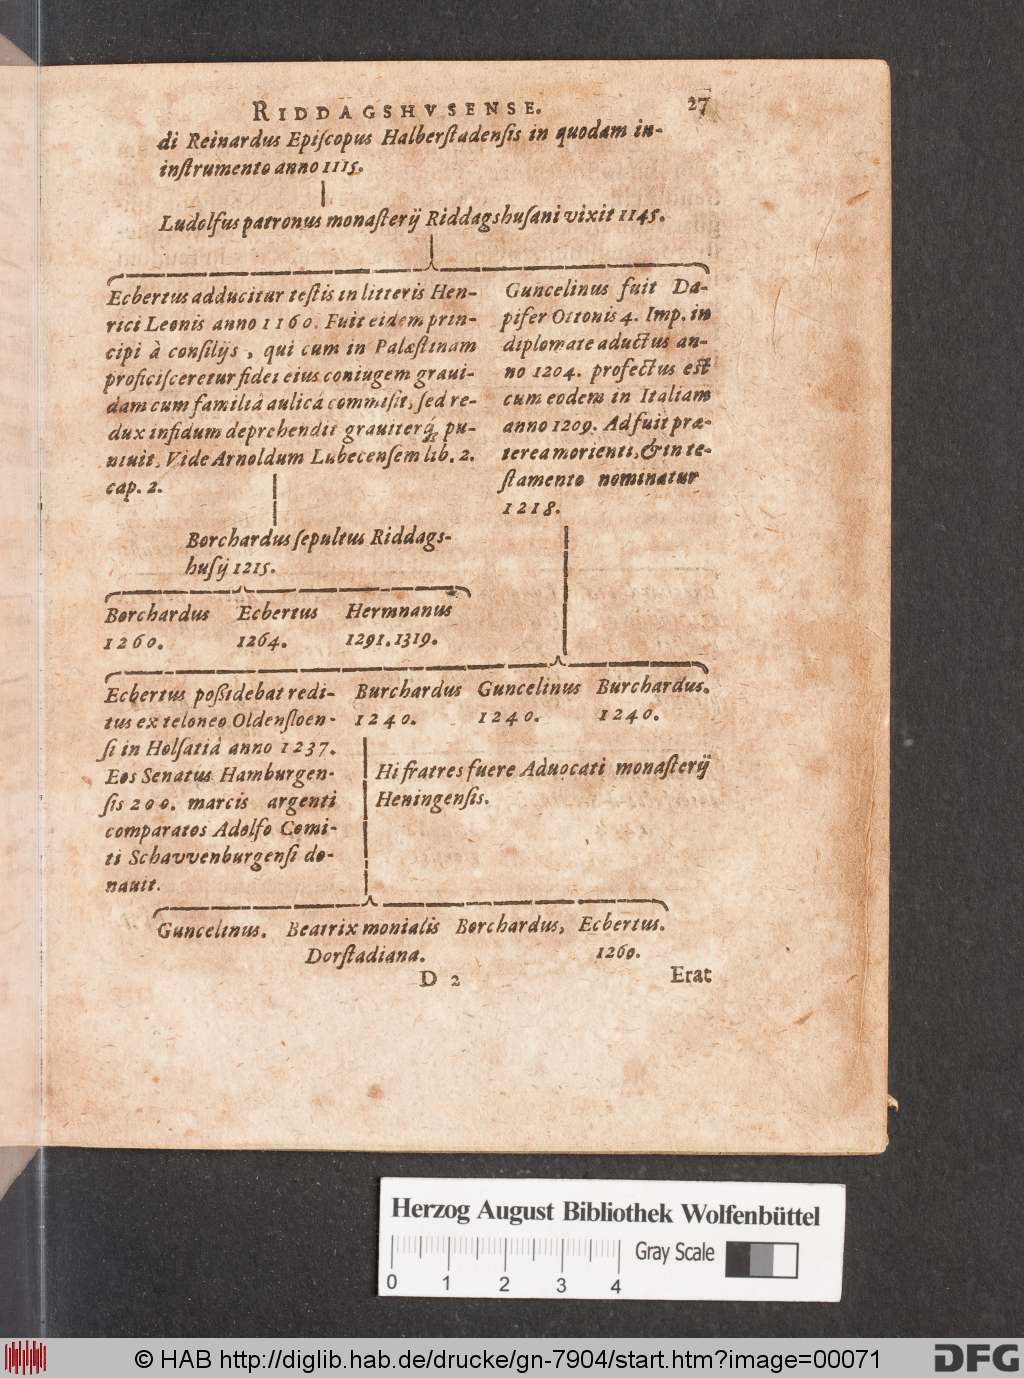 RIDDAGSHVSENSE. 27
di Reinardus Episcopus Halberstadensis in quodam in-
instrumento anno 1115.
Ludolfus patronus monasterij Riddagshusani vixit 1145.
Ecbertus adducitur testis in litteris Hen-
rici Leonis anno 1160. Fuit eidem prin-
cipi à consilijs, qui cum in Palæstinam
proficisceretur fidei eius coniugem graui-
dam cum familiâ aulicâ commisit, sed re-
dux infidum deprehendit grauiterq; pu-
niuit, Vide Arnoldum Lubecensem lib. 2.
cap. 2.
Guncelinus fuit Da-
pifer Ottonis 4. Imp. in
diplomate aductus an-
no 1204. profectus est
cum eodem in Italiam
anno 1209. Adfuit præ-
terea morienti, & in te-
stamento nominatur
1218.
Borchardus sepultus Riddags-
husij 1215.
Borchardus Ecbertus Hermnanus
1260. 1264. 1291. 1319.
Ecbertus poßidebat redi-
tus ex teloneo Oldensloen-
si in Holsatiâ anno 1237.
Eos Senatus Hamburgen-
sis 200. marcis argenti
comparatos Adolfo Comi-
ti Schavvenburgensi do-
nauit.
Burchardus Guncelinus Burchardus.
1240. 1240. 1240.
Hi fratres fuere Aduocati monasterij
Heningensis.
Guncelinus. Beatrix monialis Borchardus, Ecbertus.
Dorstadiana. 1260.
D 2 Erat
Herzog August Bibliothek Wolfenbüttel
Gray Scale
0 1 2 3 4
© HAB http://diglib.hab.de/drucke/gn-7904/start.htm?image=00071
DFG